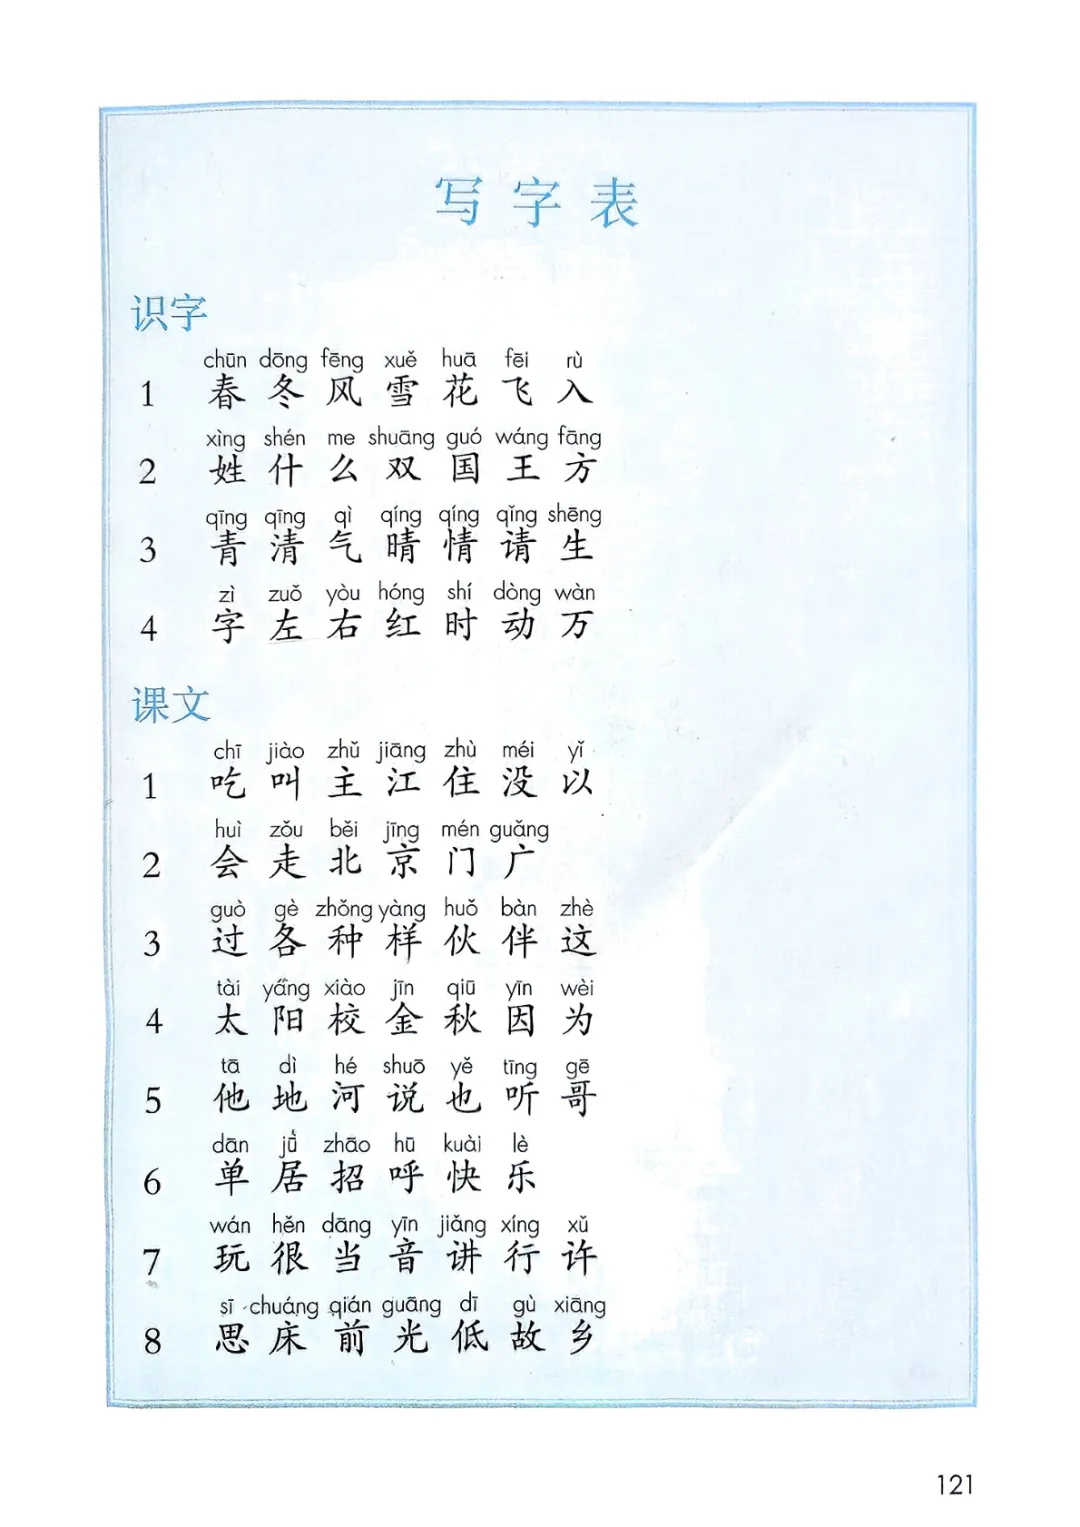 写字表
识字
chūn dōng fēng xuě huā fēi rù
1 春 冬 风 雪 花 飞 入
xìng shén me shuāng guó wáng fāng
2 姓 什 么 双 国 王 方
qīng qīng qì qíng qíng qǐng shēng
3 青 清 气 晴 情 请 生
zì zuǒ yòu hóng shí dòng wàn
4 字 左 右 红 时 动 万
课文
chī jiào zhǔ jiāng zhù méi yǐ
1 吃 叫 主 江 住 没 以
huì zǒu běi jīng mén guǎng
2 会 走 北 京 门 广
guò gè zhǒng yàng huǒ bàn zhè
3 过 各 种 样 伙 伴 这
tài yáng xiào jīn qiū yīn wèi
4 太 阳 校 金 秋 因 为
tā dì hé shuō yě tīng gē
5 他 地 河 说 也 听 哥
dān jū zhāo hū kuài lè
6 单 居 招 呼 快 乐
wán hěn dāng yīn jiǎng xíng xǔ
7 玩 很 当 音 讲 行 许
sī chuáng qián guāng dī gù xiāng
8 思 床 前 光 低 故 乡
121